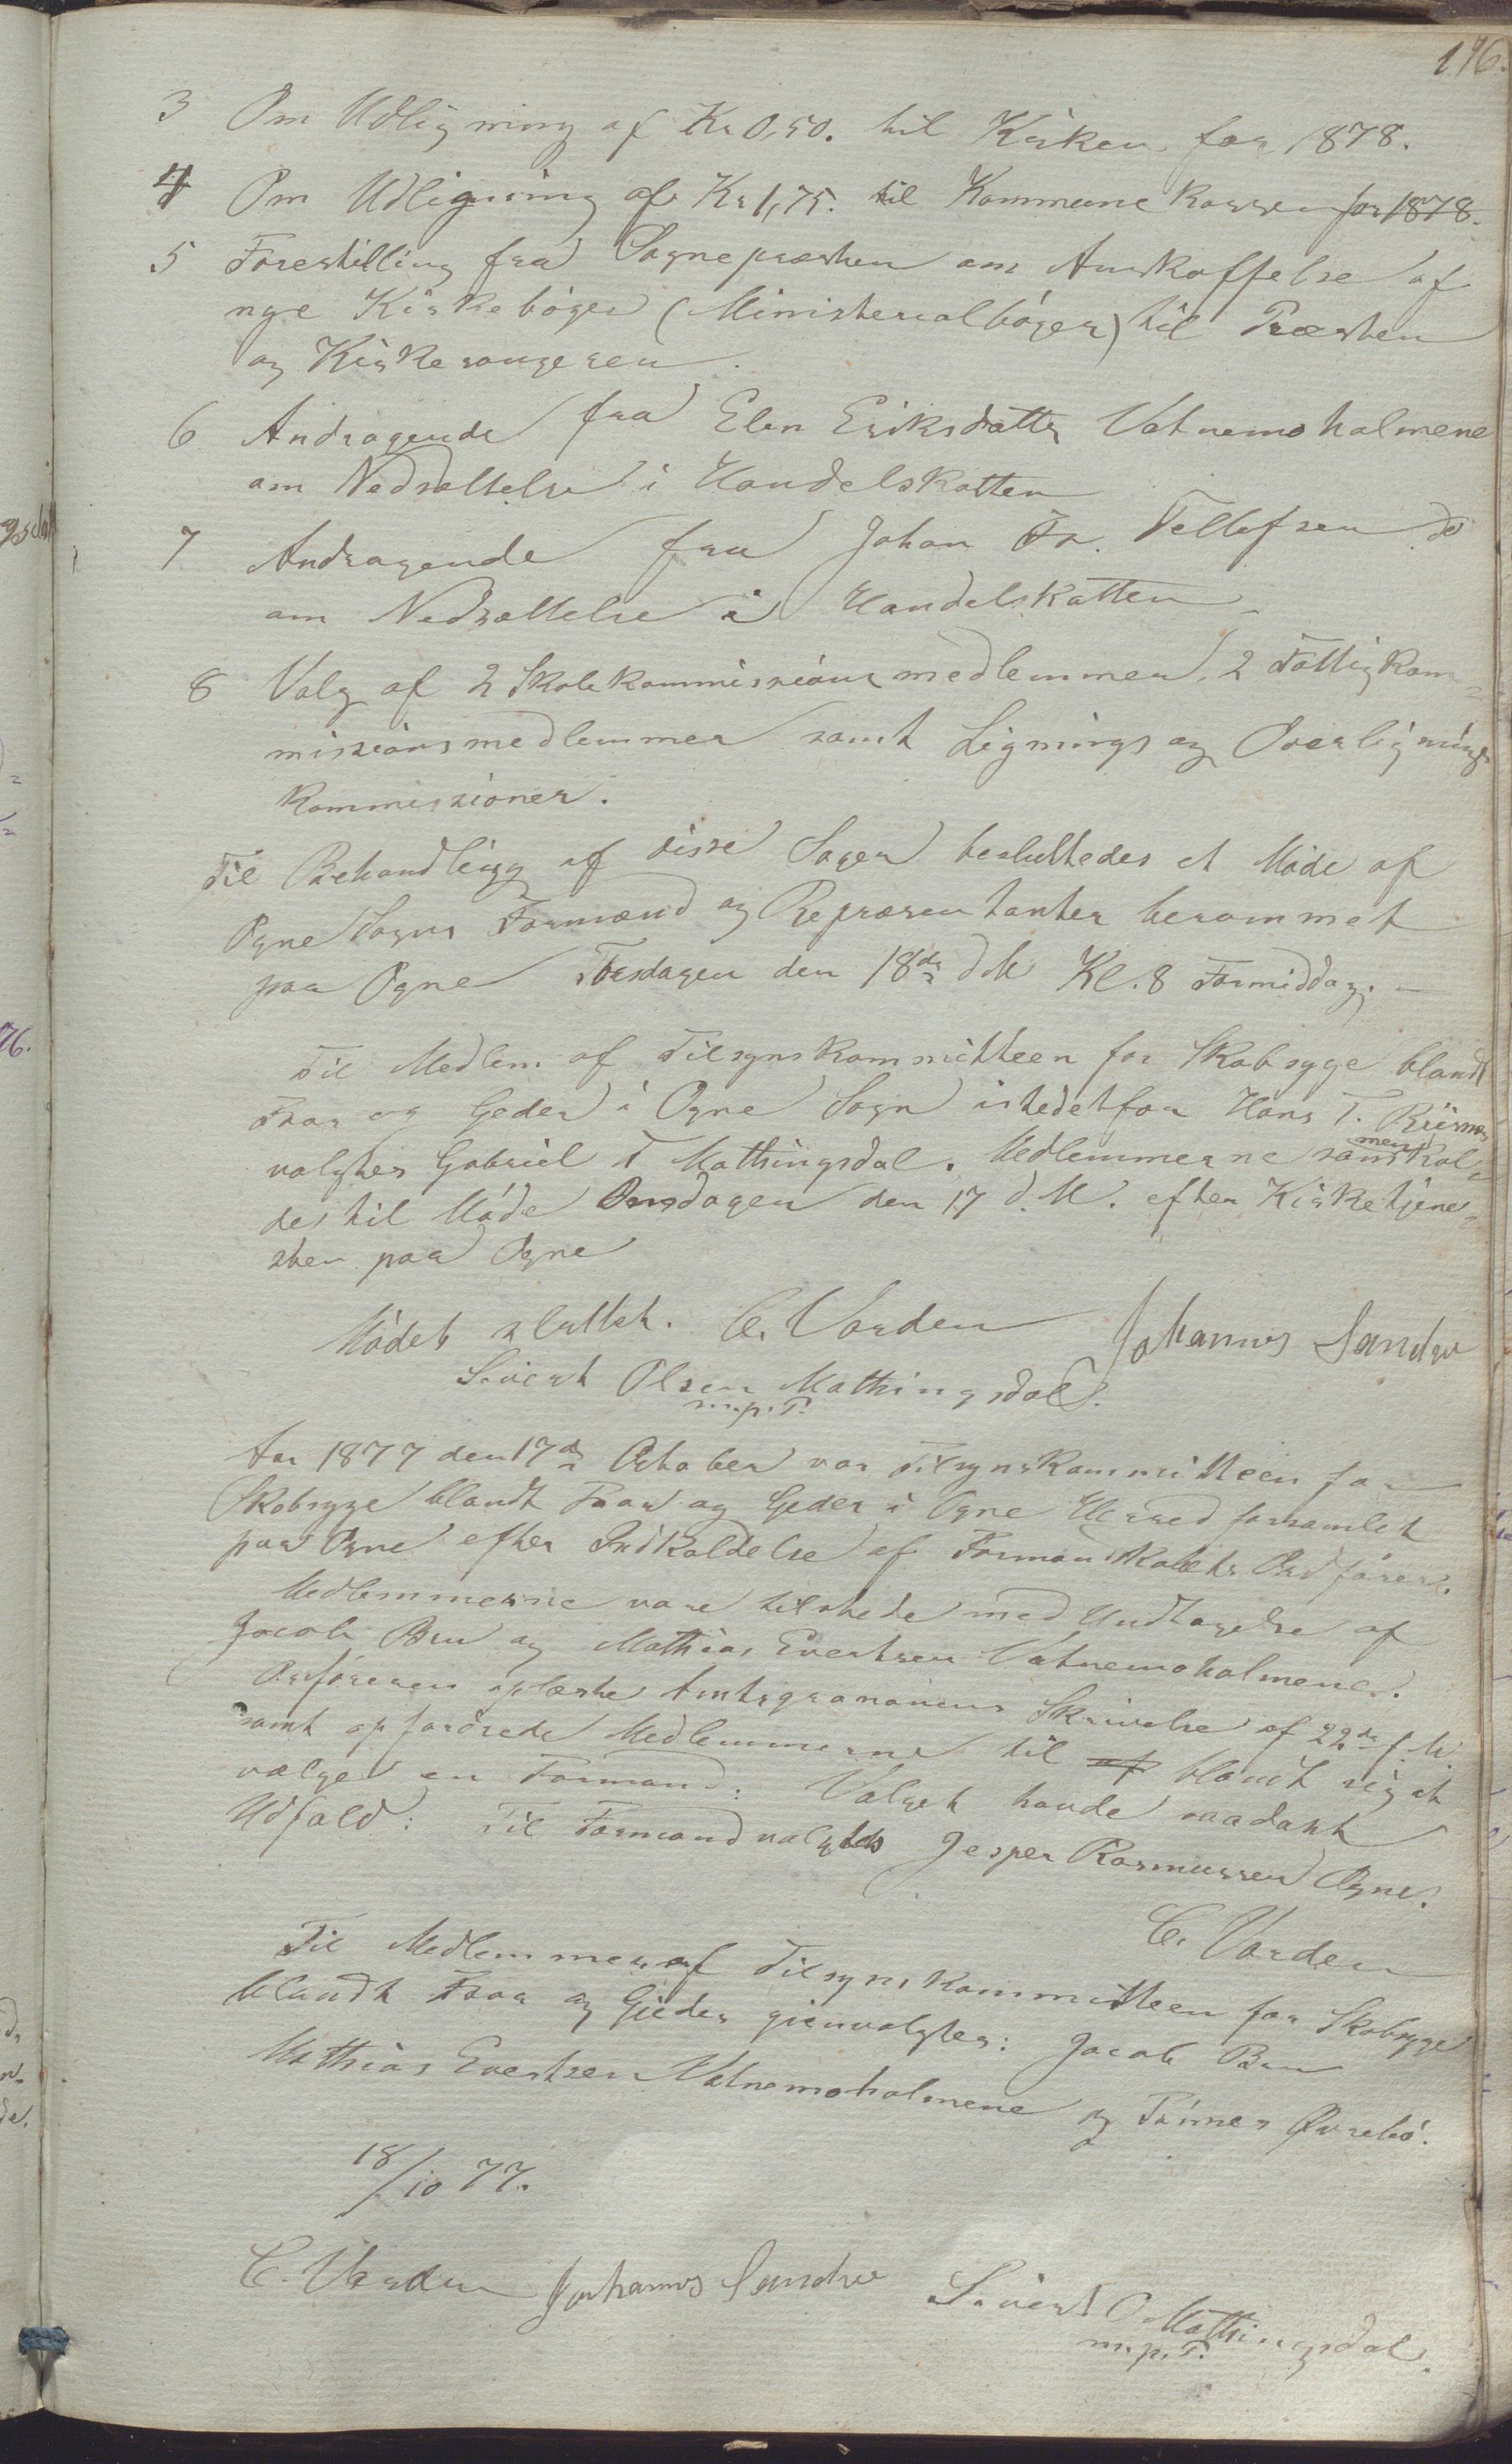 176.
3 Om Udligning af Kr 0,50. til Kirken for 1878.
4 Om Udligning af Kr 1,75. til Kommunekassen for 1878.
5 Forestilling fra Sognepræsten om Anskaffelse af
nye Kirkebøger (Ministerialbøger) til Præsten
og Kirkesangeren.
6 Andragende fra Elen Eriksdatter Vatnemoholmene
om Nedsættelse i Handelskatten
7 Andragende fra Johan Fr. Tellefsen do
om Nedsættelse i Handelskatten
8 Valg af 2 Skolekommissionsmedlemmer, 2 Fattigkom-
missionsmedlemmer samt Lignings og Overlignings
kommissioner.
Til Behandling af disse Sager besluttedes et Møde af
Ogne Sogns Formænd og Repræsentanter berammet
paa Ogne Torsdagen den 18de d M Kl. 8 Formiddag. —
Til Medlem af Tilsynskommitteen for Skabsyge blandt
Faar og Geder i Ogne Sogn istedetfor Hans T.
valgtes Gabriel T Mathingsdal. Medlemmerne sammenkal-
des til Møde Onsdagen den 17 d. M. efter Kirketjene-
sten paa Ogne
Mødet sluttet. C. Varden Johannes Sandve
Sivert Olsen Mathingsdal.
m.p.P.
Aar 1877 den 17de October var Tilsynskommitteen for
Skabsyge blandt Faar og Geder i Ogne Herred forsamlet
paa Ogne efter Indkaldelse af Formandskabets Ordfører.
Medlemmerne vare tilstede med Undtagelse af
Jacob Bru og Mathias Evertsen Vatnemoholmene.
Orføreren oplæste Amtsgranariens Skrivelse af 22de f. M.
samt opfordrede Medlemmerne til af blandt sig at
vælge en Formand. Valget havde saadant
Udfald: Til Formand valgtes Jesper Rasmussen Ogne.
C. Varden
Til Medlemmer af Tilsynskommitteen for Skabsyge
blandt Faar og Gjeder gjenvalgtes: Jacob Bru
Mathias Evertsen Vatnemoholmene og Tønnes Øvrebø.
18/10 77.
C. Varden Johannes Sandve Sivert O Mathingsdal.
m.p.P.